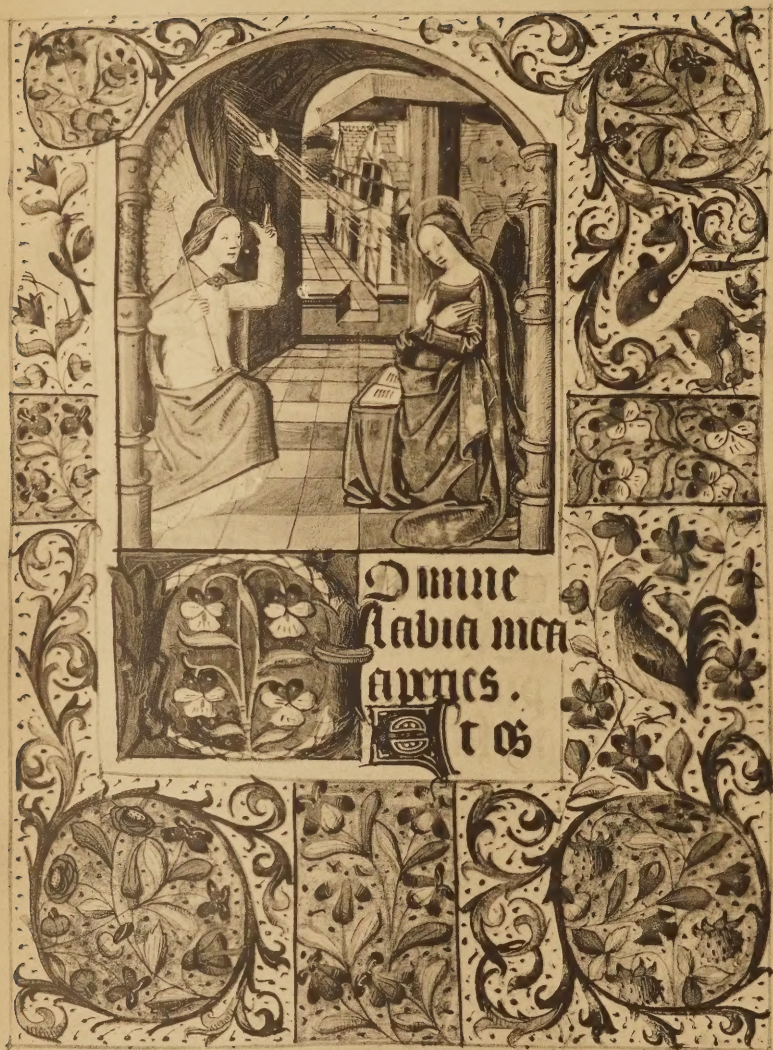 DOmine
labia mea
aperies .
Et os